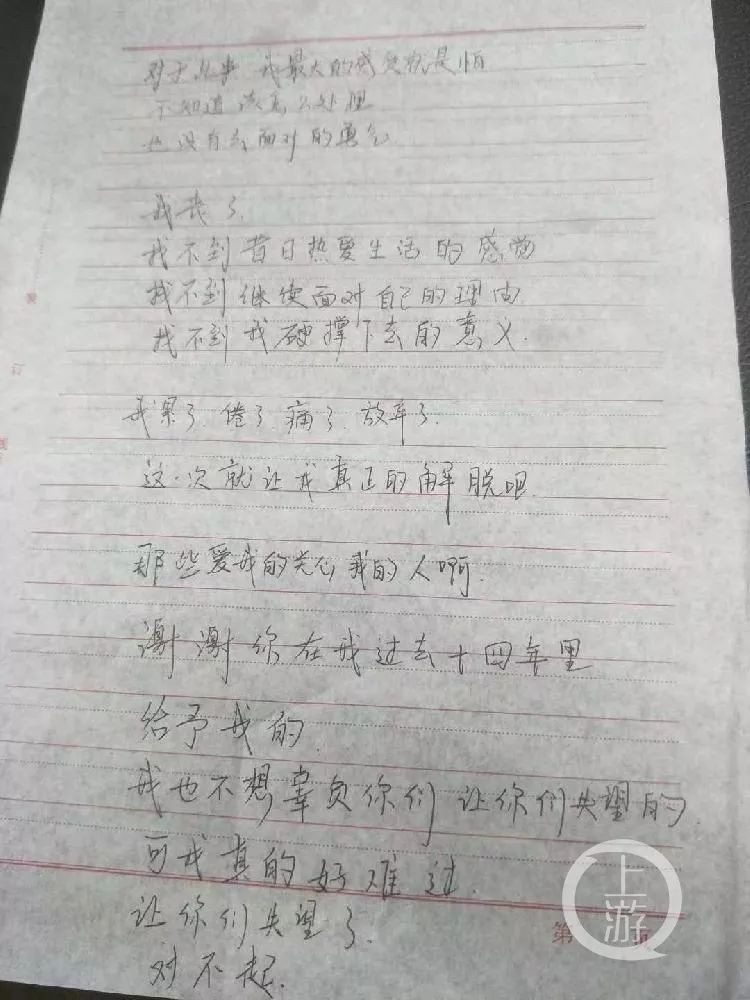 对于此事 我最大的感受就是怕
不知道该怎么处理
也没有去面对的勇气
我丧了.
找不到昔日热爱生活的感觉
找不到继续面对自己的理由.
找不到我硬撑下去的意义.
我累了.倦了.痛了.放弃了.
这次就让我真正的解脱吧.
那些爱我的关心我的人啊.
谢谢你在我过去十四年里
给予我的.
我也不想辜负你们 让你们失望的.
可我真的好难过.
让你们失望了.
对不起.
装
订
线
第 页
上游